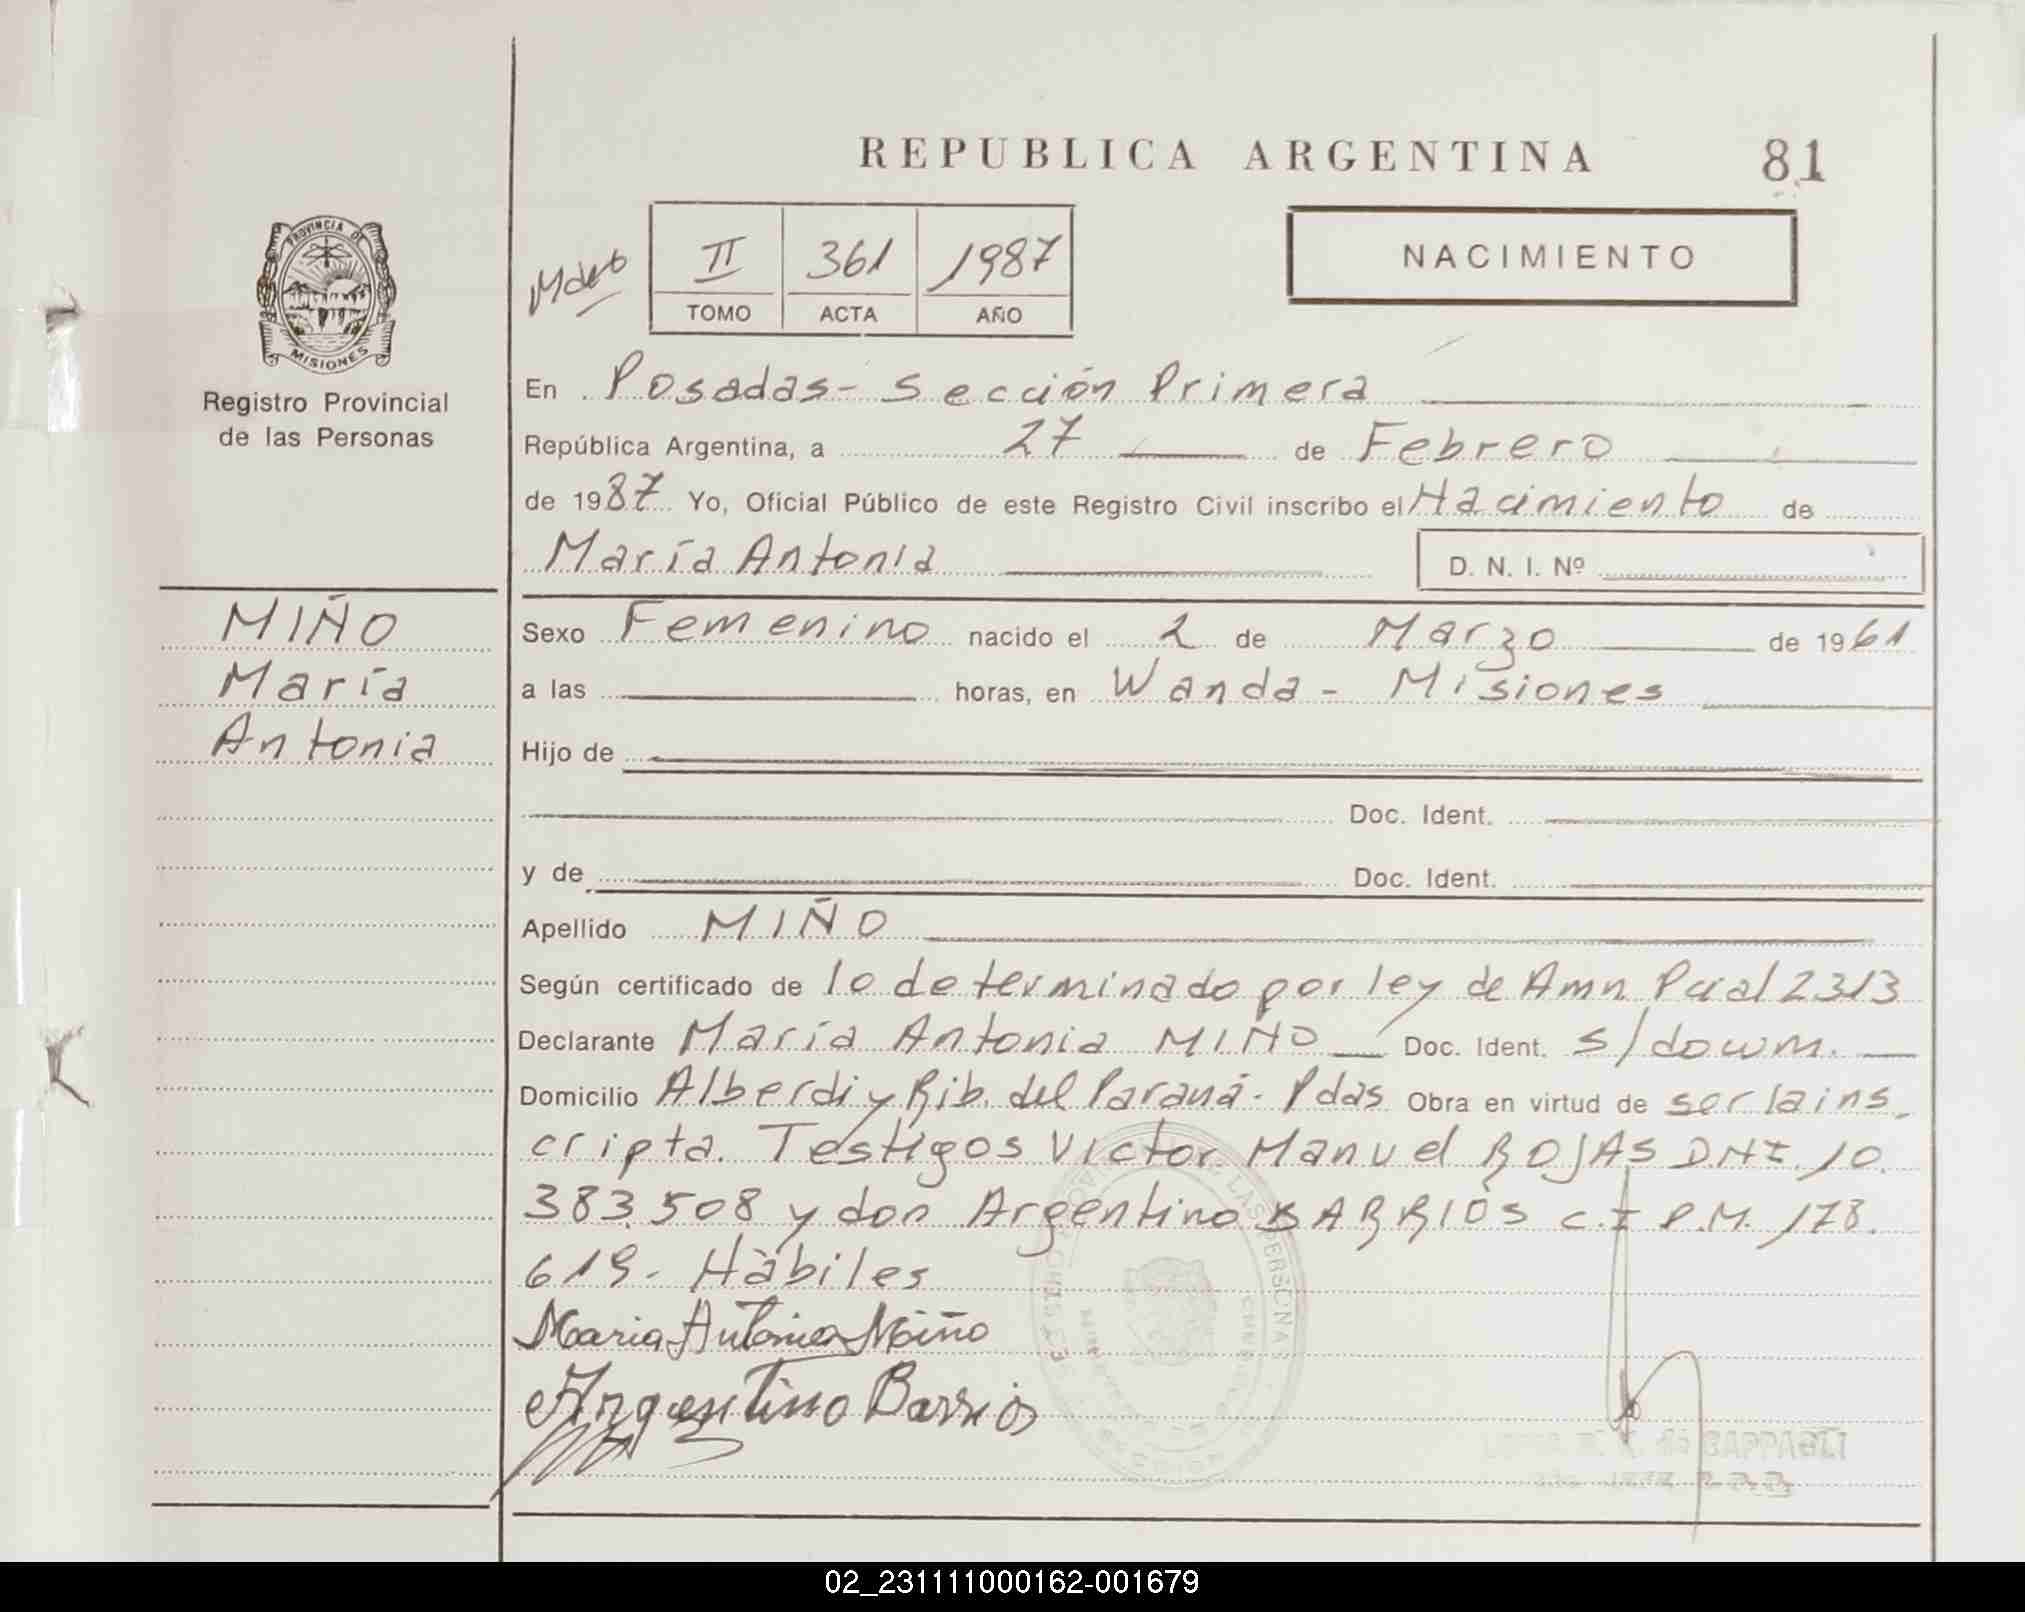 REPUBLICA ARGENTINA 81
PROVINCIA DE
MISIONES
Registro Provincial
de las Personas
II 361 1987
TOMO ACTA AÑO
NACIMIENTO
MIÑO
María
Antonia
En Posadas - Sección Primera
República Argentina, a 27 de Febrero
de 1987 Yo, Oficial Público de este Registro Civil inscribo el Nacimiento de
María Antonia D. N. I. Nº
Sexo Femenino nacido el 2 de Marzo de 1961
a las horas, en Wanda - Misiones
Hijo de
Doc. Ident.
y de Doc. Ident.
Apellido MIÑO
Según certificado de lo determinado por ley de Amn. Pcial 2313
Declarante María Antonia MIÑO Doc. Ident. s/docum.
Domicilio Alberdi y Rib. del Paraná - Pdas Obra en virtud de ser la ins-
cripta. Testigos Victor Manuel ROJAS DNI 10.
383.508 y don Argentino BARRIOS C.I P.M. 178.
619. Hábiles
Maria Antonia Miño
Argentino Barrios
02_231111000162-001679